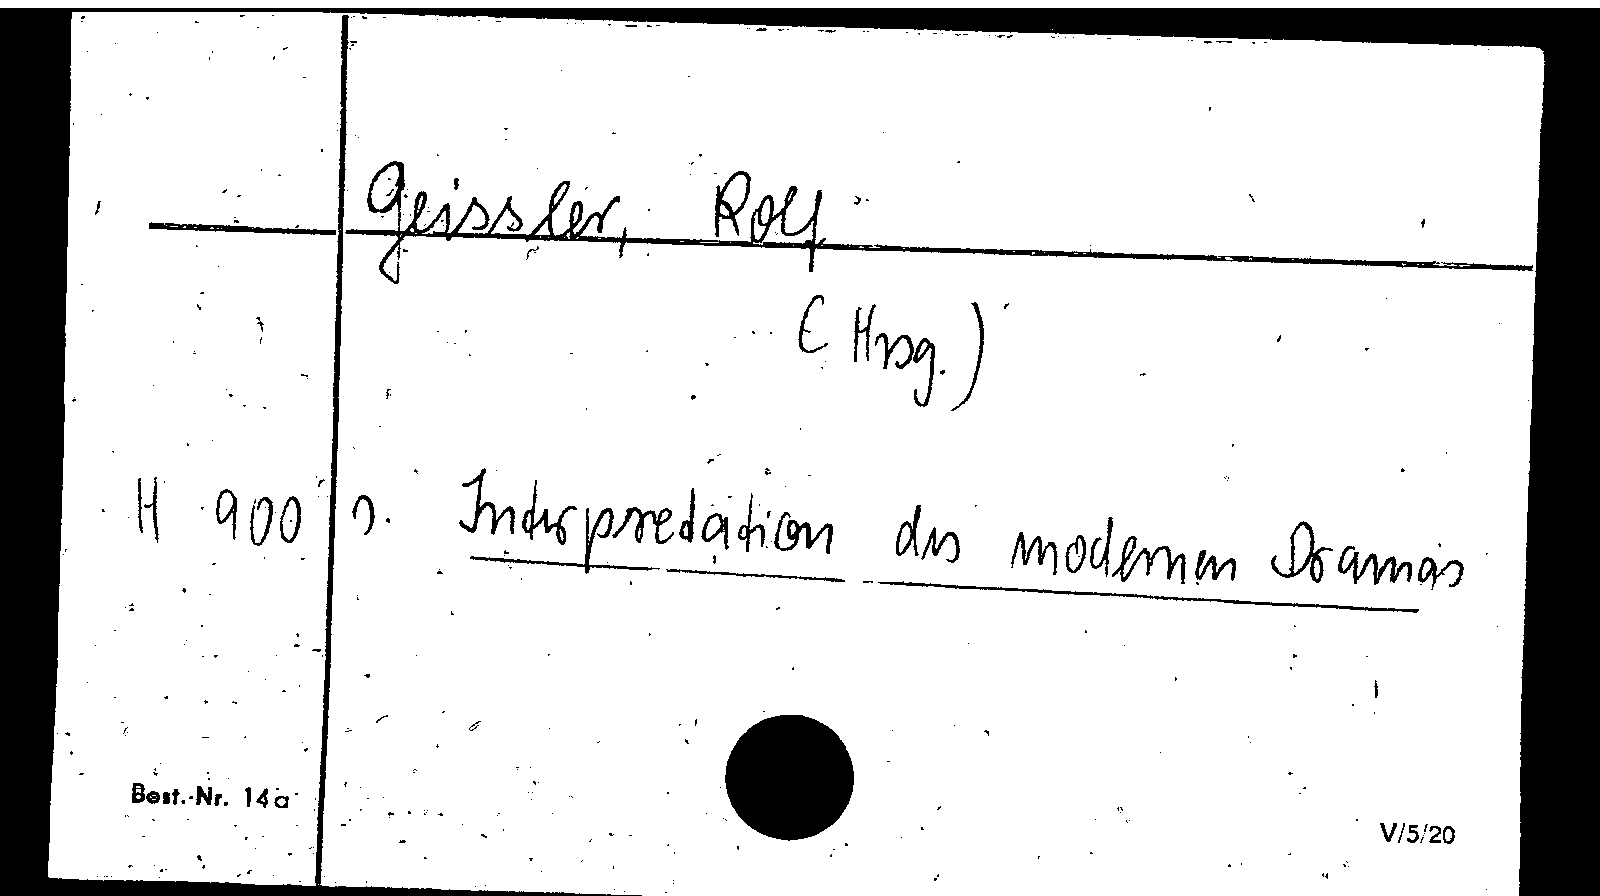 Geissler, Rolf
(Hrsg.)
H 900 s. Interpretation des modernen Dramas
Best.-Nr. 14a
V/5/20